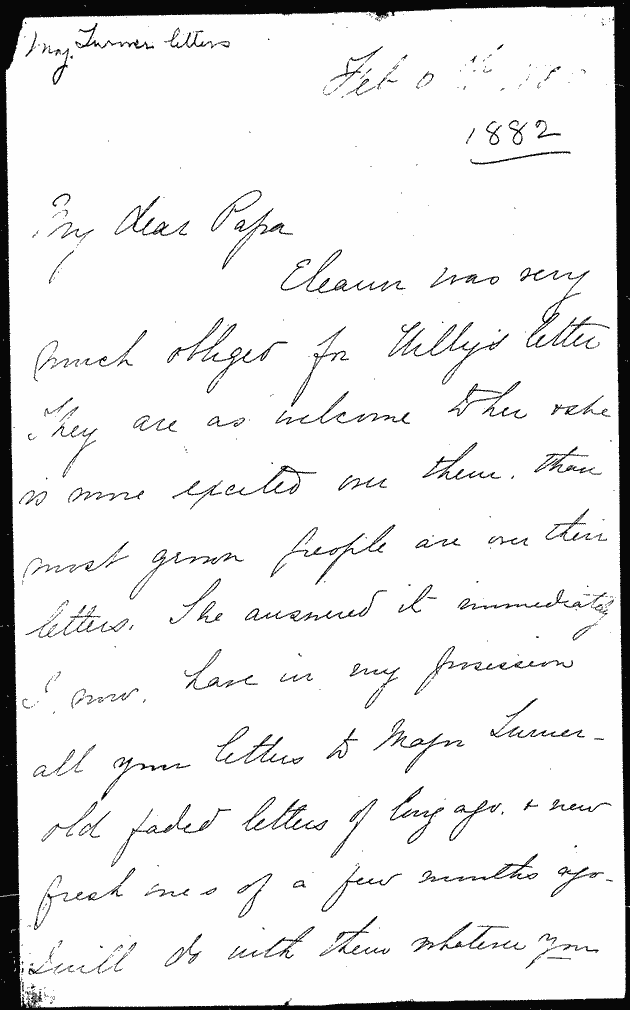 Maj. Turner letters
Feb
1882
My dear Papa
Eleanor was very
much obliged for Willy's letter
They are as welcome to her & she
is more excited over them. than
most grown people are over their
letters. She answered it immediately
I now. have in my posession
all your letters to Major Turner-
old faded letters of long ago. & new
fresh ones of a few months ago-
I will do with them whatever you